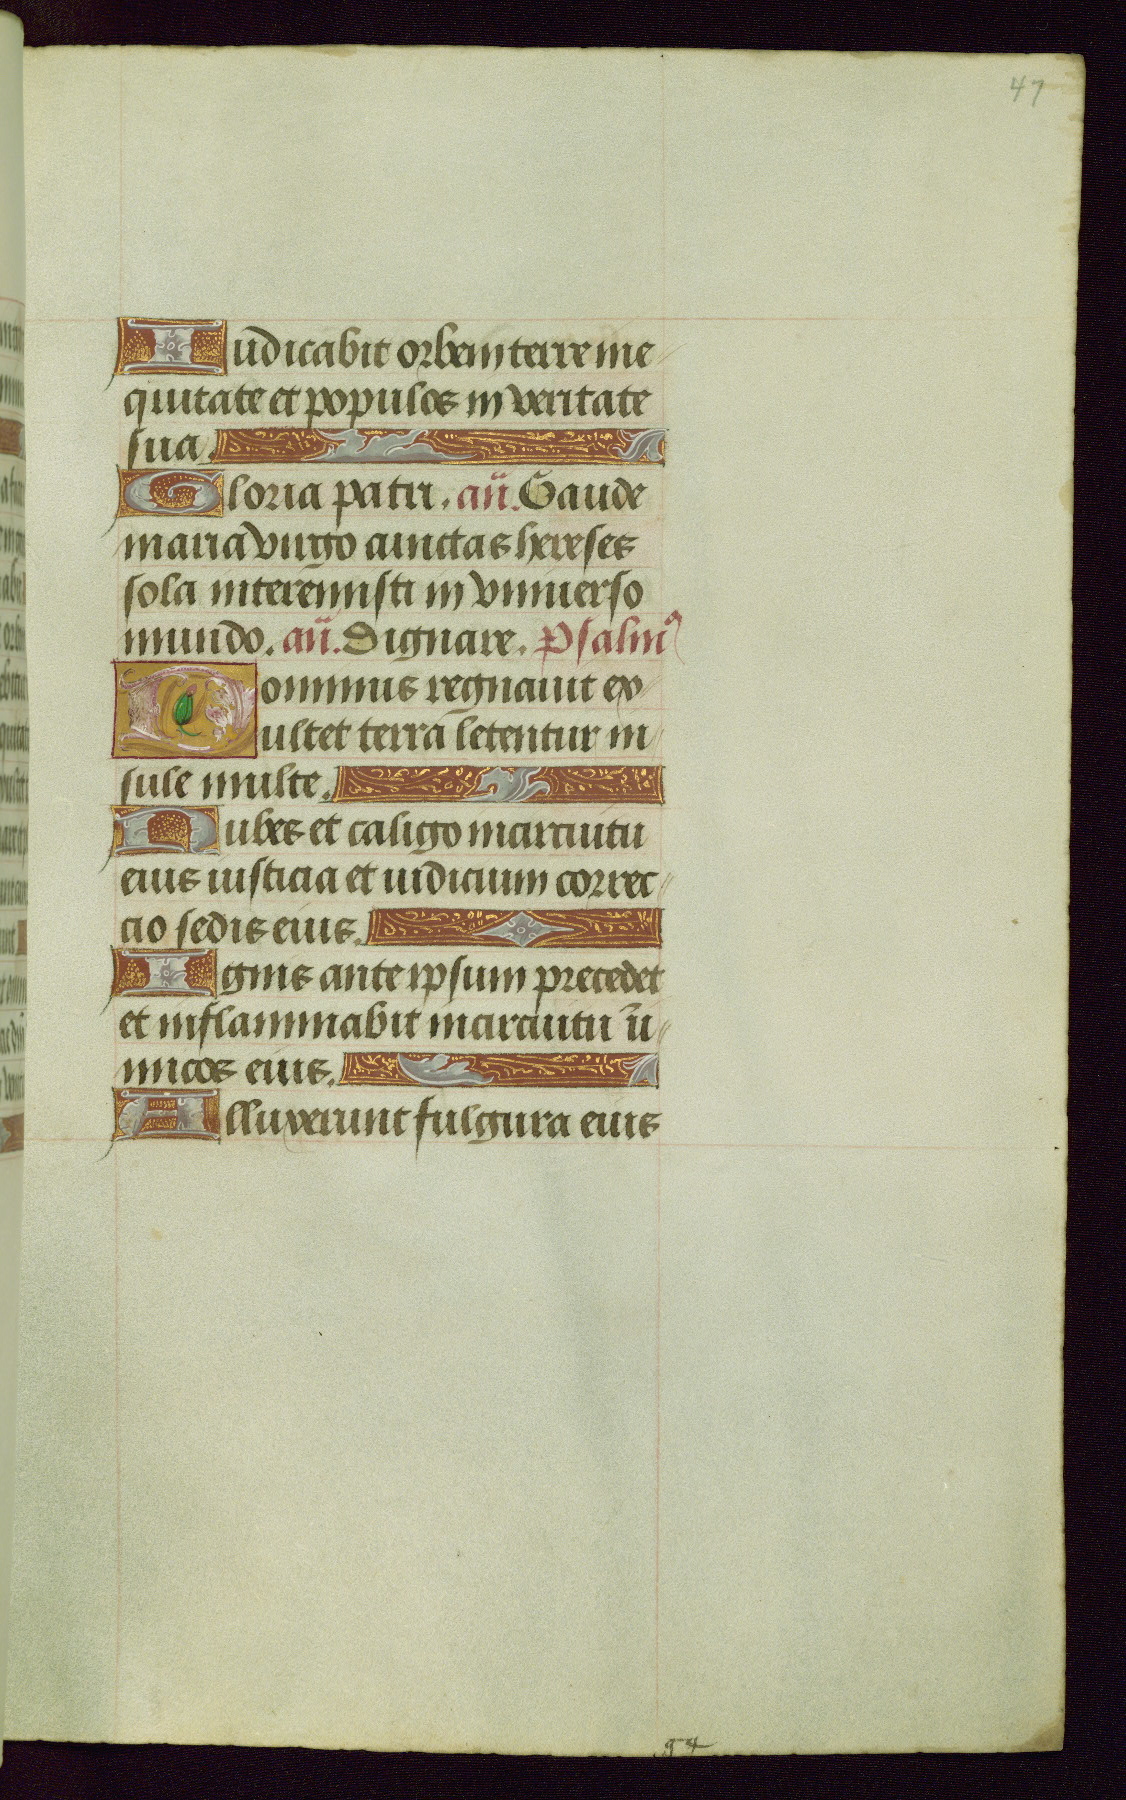 47
Iudicabit orbem terre in e
quitate et populos in veritate
sua.
Gloria patri. añ. Gaude
maria virgo cunctas hereses
sola interemisti in vniuerso
mundo. añ. Dignare. Psalmꝰ
Dominus regnauit ex
ultet terra letentur in
sule multe.
Nubes et caligo in circuitu
eius iusticia et iudicium correc
cio sedis eius.
Ignis ante ipsum precedet
et inflammabit in circuitu in
imicos eius.
Alluxerunt fulgura eius